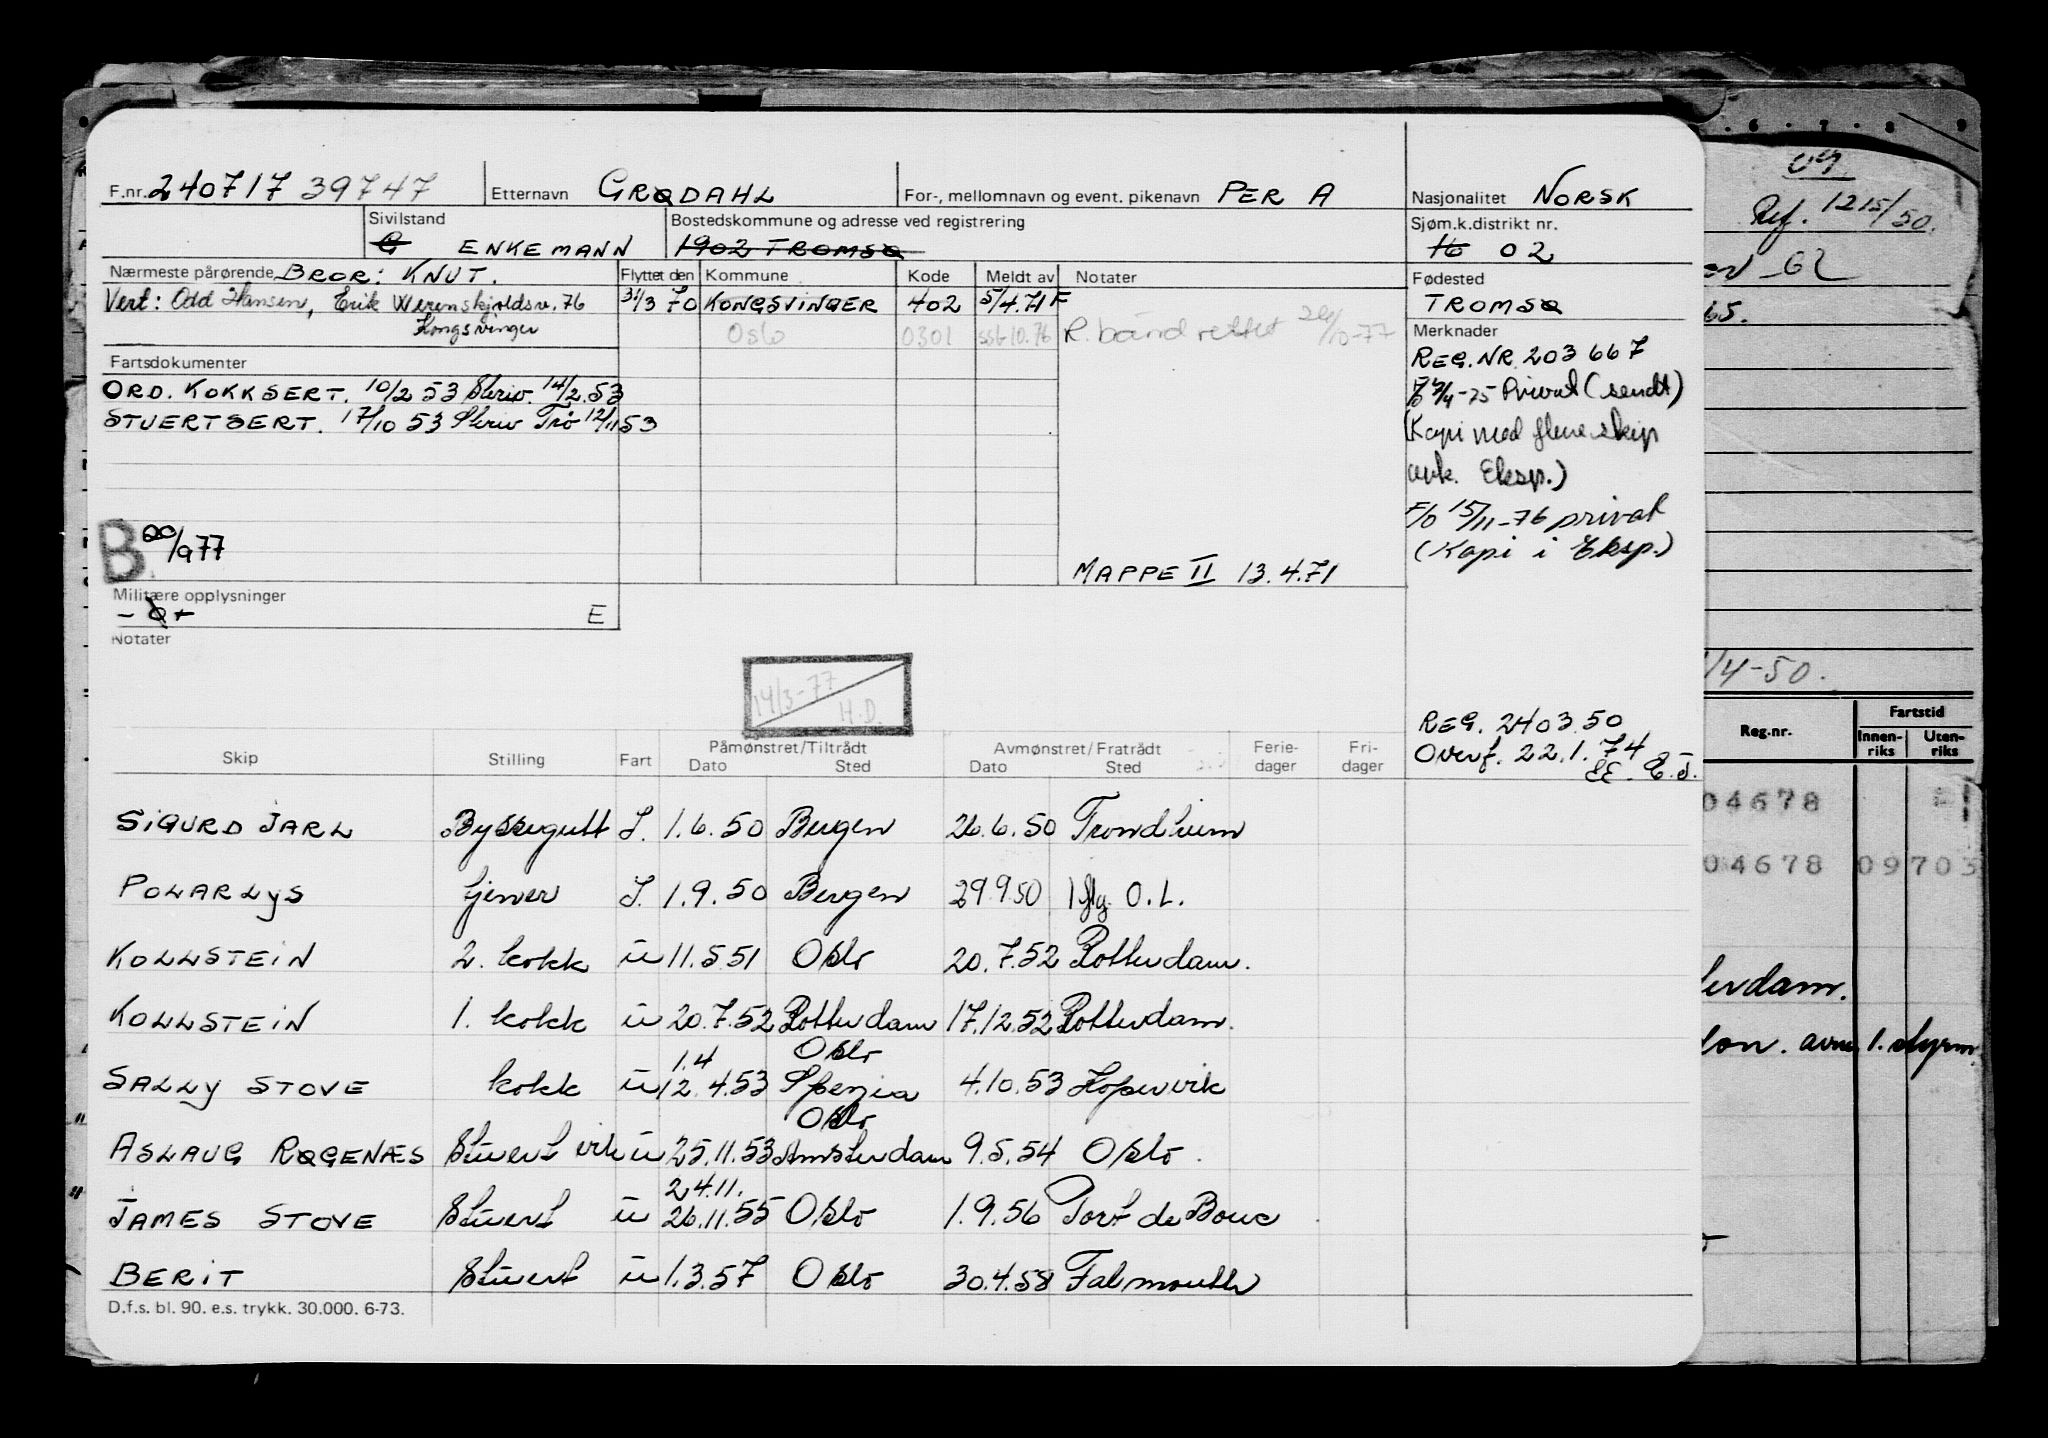 F.nr. 240717 39747 Etternavn GRØDAHL For-, mellomnavn og event. pikenavn PER A Nasjonalitet NORSK
Sivilstand Bostedskommune og adresse ved registrering Sjøm.k.distrikt nr.
G ENKEMANN 1902 TROMSØ 16 02
Nærmeste pårørende BROR: KNUT. Flyttet den Kommune Kode Meldt av Notater Fødested
Vert: Odd Hansen, Erik Werenskjoldsv. 76 31/3 70 KONGSVINGER 402 5/4.71 F TROMSØ
Kongsvinger Oslo 0301 10.76 R. bånd rettet 20/10-77 Merknader
Fartsdokumenter REG. NR. 203 667
ORD. KOKKSERT. 10/2 53 Skriv. 14/2.53 7/4-75 Privat (sendt)
STUERTSERT. 17/10 53 Skriv Trø 12/11 53 (Kopi med flere skip
Eksp.)
F/O 15/11-76 privat
B 20/9 77 (Kopi i Eksp.)
MAPPE II 13.4.71
Militære opplysninger
E
Notater
14/3-77
H.D.
REG. 240350
Overf. 22.1.74
Skip Stilling Fart Påmønstret/Tiltrådt Dato Sted Avmønstret/Fratrådt Dato Sted Ferie-dager Fri-dager
SIGURD JARL Byssegutt I. 1.6.50 Bergen 26.6.50 Trondheim
POLARLYS tjener I. 1.9.50 Bergen 29.9.50 Iflg. O.L.
KOLLSTEIN 2. kokk u 11.5.51 Oslo 20.7.52 Rotterdam.
KOLLSTEIN 1. kokk u 20.7.52 Rotterdam 17.12.52 Rotterdam.
1.4 Oslo
SALLY STOVE kokk u 12.4.53 Spezia 4.10.53 Kopervik
Oslo
ASLAUG RØGENÆS Stuert vik u 25.11.53 Amsterdam 9.5.54 Oslo.
24.11.
JAMES STOVE Stuert u 26.11.55 Oslo 1.9.56 Port de Bouc
BERIT Stuert u 1.3.57 Oslo 30.4.58 Falmouth
D.f.s. bl. 90. e.s. trykk. 30.000. 6-73.
6 7 8 9
Ref. 1215/50.
62
65.
/4-50.
Reg.nr. Fartstid
Innen-riks Uten-riks
04678
04678 09703
terdam.
avm. 1. styrm.